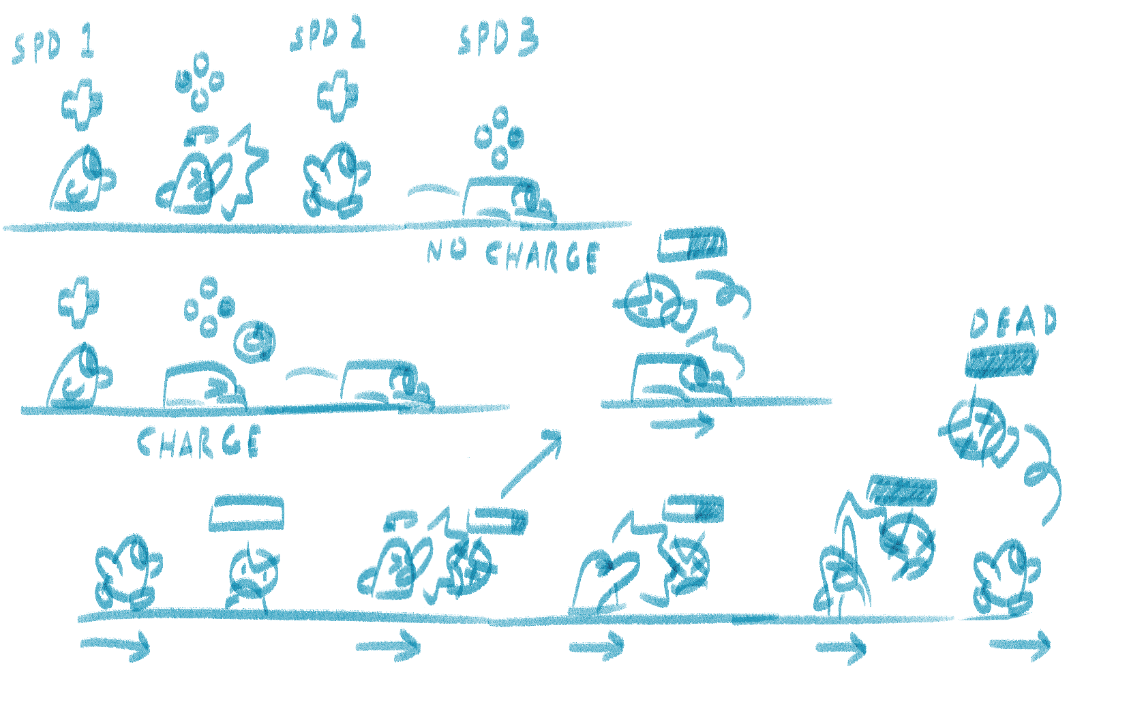 SPD 1
SPD 2
SPD 3
NO CHARGE
CHARGE
DEAD